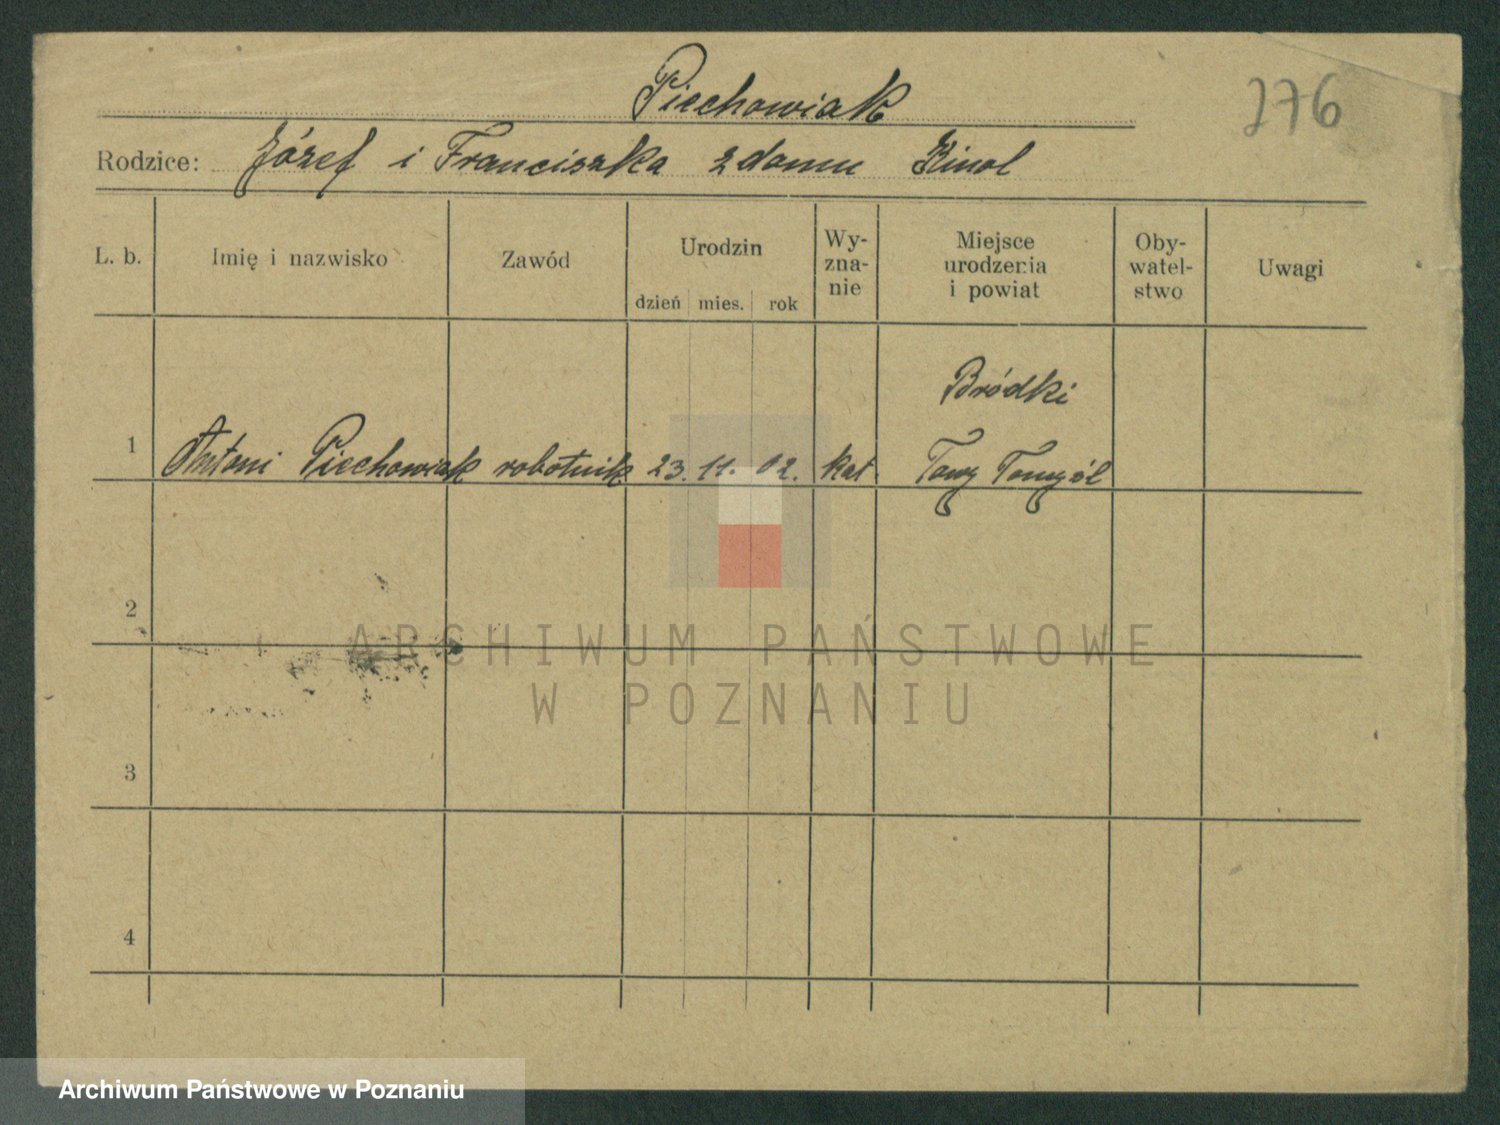 Piechowiak
276
Rodzice: Józef i Franciszka z domu Kinol
L. b.
Imię i nazwisko
Zawód
Urodzin
dzień mies. rok
Wy-
zna-
nie
Miejsce
urodzenia
i powiat
Oby-
watel-
stwo
Uwagi
Bródki
1 Antoni Piechowiak robotnik 23. 11. 02. kat Nowy Tomyśl
2
3
4
ARCHIWUM PAŃSTWOWE
W POZNANIU
Archiwum Państwowe w Poznaniu